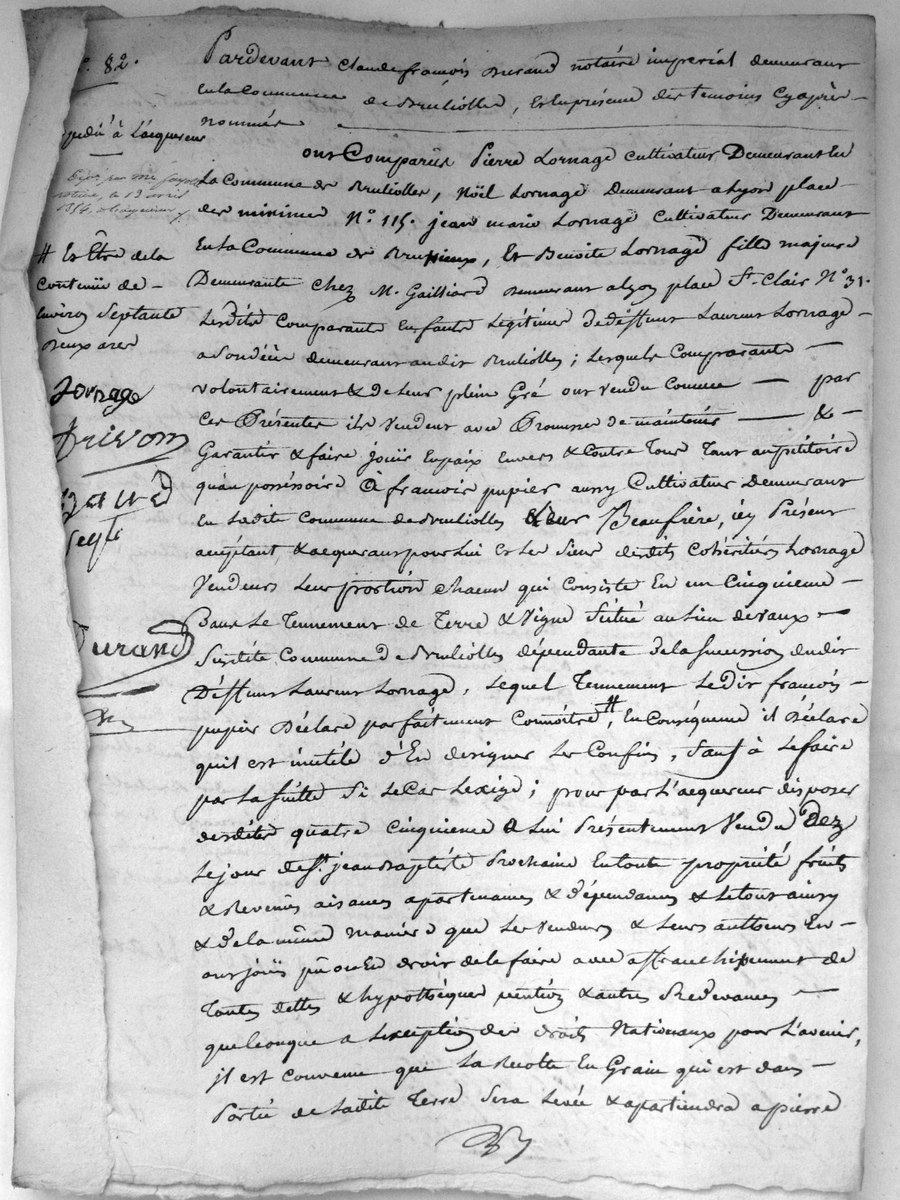 82.
à l'acquereur
# Et Être de la
Contenüe de
Environ Septante
Deux ares
Lornage
Durand
Pardevant Claude francois Durand notaire imperial demeurant
En la Commune de Bruliolles, Et En présence des temoins Cyaprès
nommés
ont Comparües Pierre Lornage Cultivateur Demeurant En
La Commune de Bruliolles, Noël Lornage Demeurant a Lyon place
des minimes N° 115. jean marie Lornage Cultivateur Demeurant
En La Commune de Brussieux, Et Benoite Lornage fille majeure
Demeurante chez M. Gailliard Demeurant a Lyon place St. Clair N° 31.
Lesdits Comparants Enfants Légitimes de deffunt Laurent Lornage
a Son déces demeurant audit Bruliolles; Lesquels Comparants
volontairement & de Leur plein Gré ont vendu Comme par
Ces Présentes ils Vendent avec Promesse de maintenir &
Garantir & faire jouïr En paix Envers & Contre Tous Tant au pétitoire
qu'au posséssoire A francois pupier aussy Cultivateur Demeurant
En Ladite Commune de Bruliolles Leur Beaufrère, icy Présent
acceptant & acquerant pour Lui Et Les Siens desdits Cohéritiers Lornage
Vendeurs Leur portion chacun qui Consiste En un Cinquieme
Dans Le Tennement de Terre & Vigne Situé au Lieu de vaux
Susdite Commune de Bruliolles dépendante de la Succession dudit
Déffunt Laurent Lornage, Lequel Tennement Ledit francois
pupier Déclare parfaitement Connoître #, En Conséquence il Déclare
qu'il est inutile d'En designer Les Confins, Sauf à Le faire
par La Suitte Si Le Cas L'exige; pour par L'acquereur disposer
desdites quatre Cinquieme a Lui Présentement Vendu Dez
Le jour de St. jean Baptiste Prochaine En toute propriété fruits
& Revenus aisances apartenances & dépendances & Le tout ainsy
& de la même Maniere que Les Vendeurs & Leurs autheurs En
ont joüis pu ou En droit de le faire avec affranchissement de
Toutes dettes & hypothéques rentes & autres Redevances
quelconque a L'exception des droits Nationaux pour L'avenir,
il est Convenu que La Récolte En Grain qui est dans
Partie de Ladite Terre Sera Levée & apartiendra a pierre